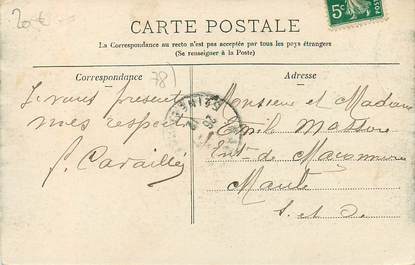 20€
CARTE POSTALE
La Correspondance au recto n'est pas acceptée par tous les pays étrangers
(Se renseigner à la Poste)
5c
Correspondance
78
Je vous présente
mes respects
Adresse
Monsieur et Madame
Emile
Entr. de Maçonnerie
Maule
S. et O.